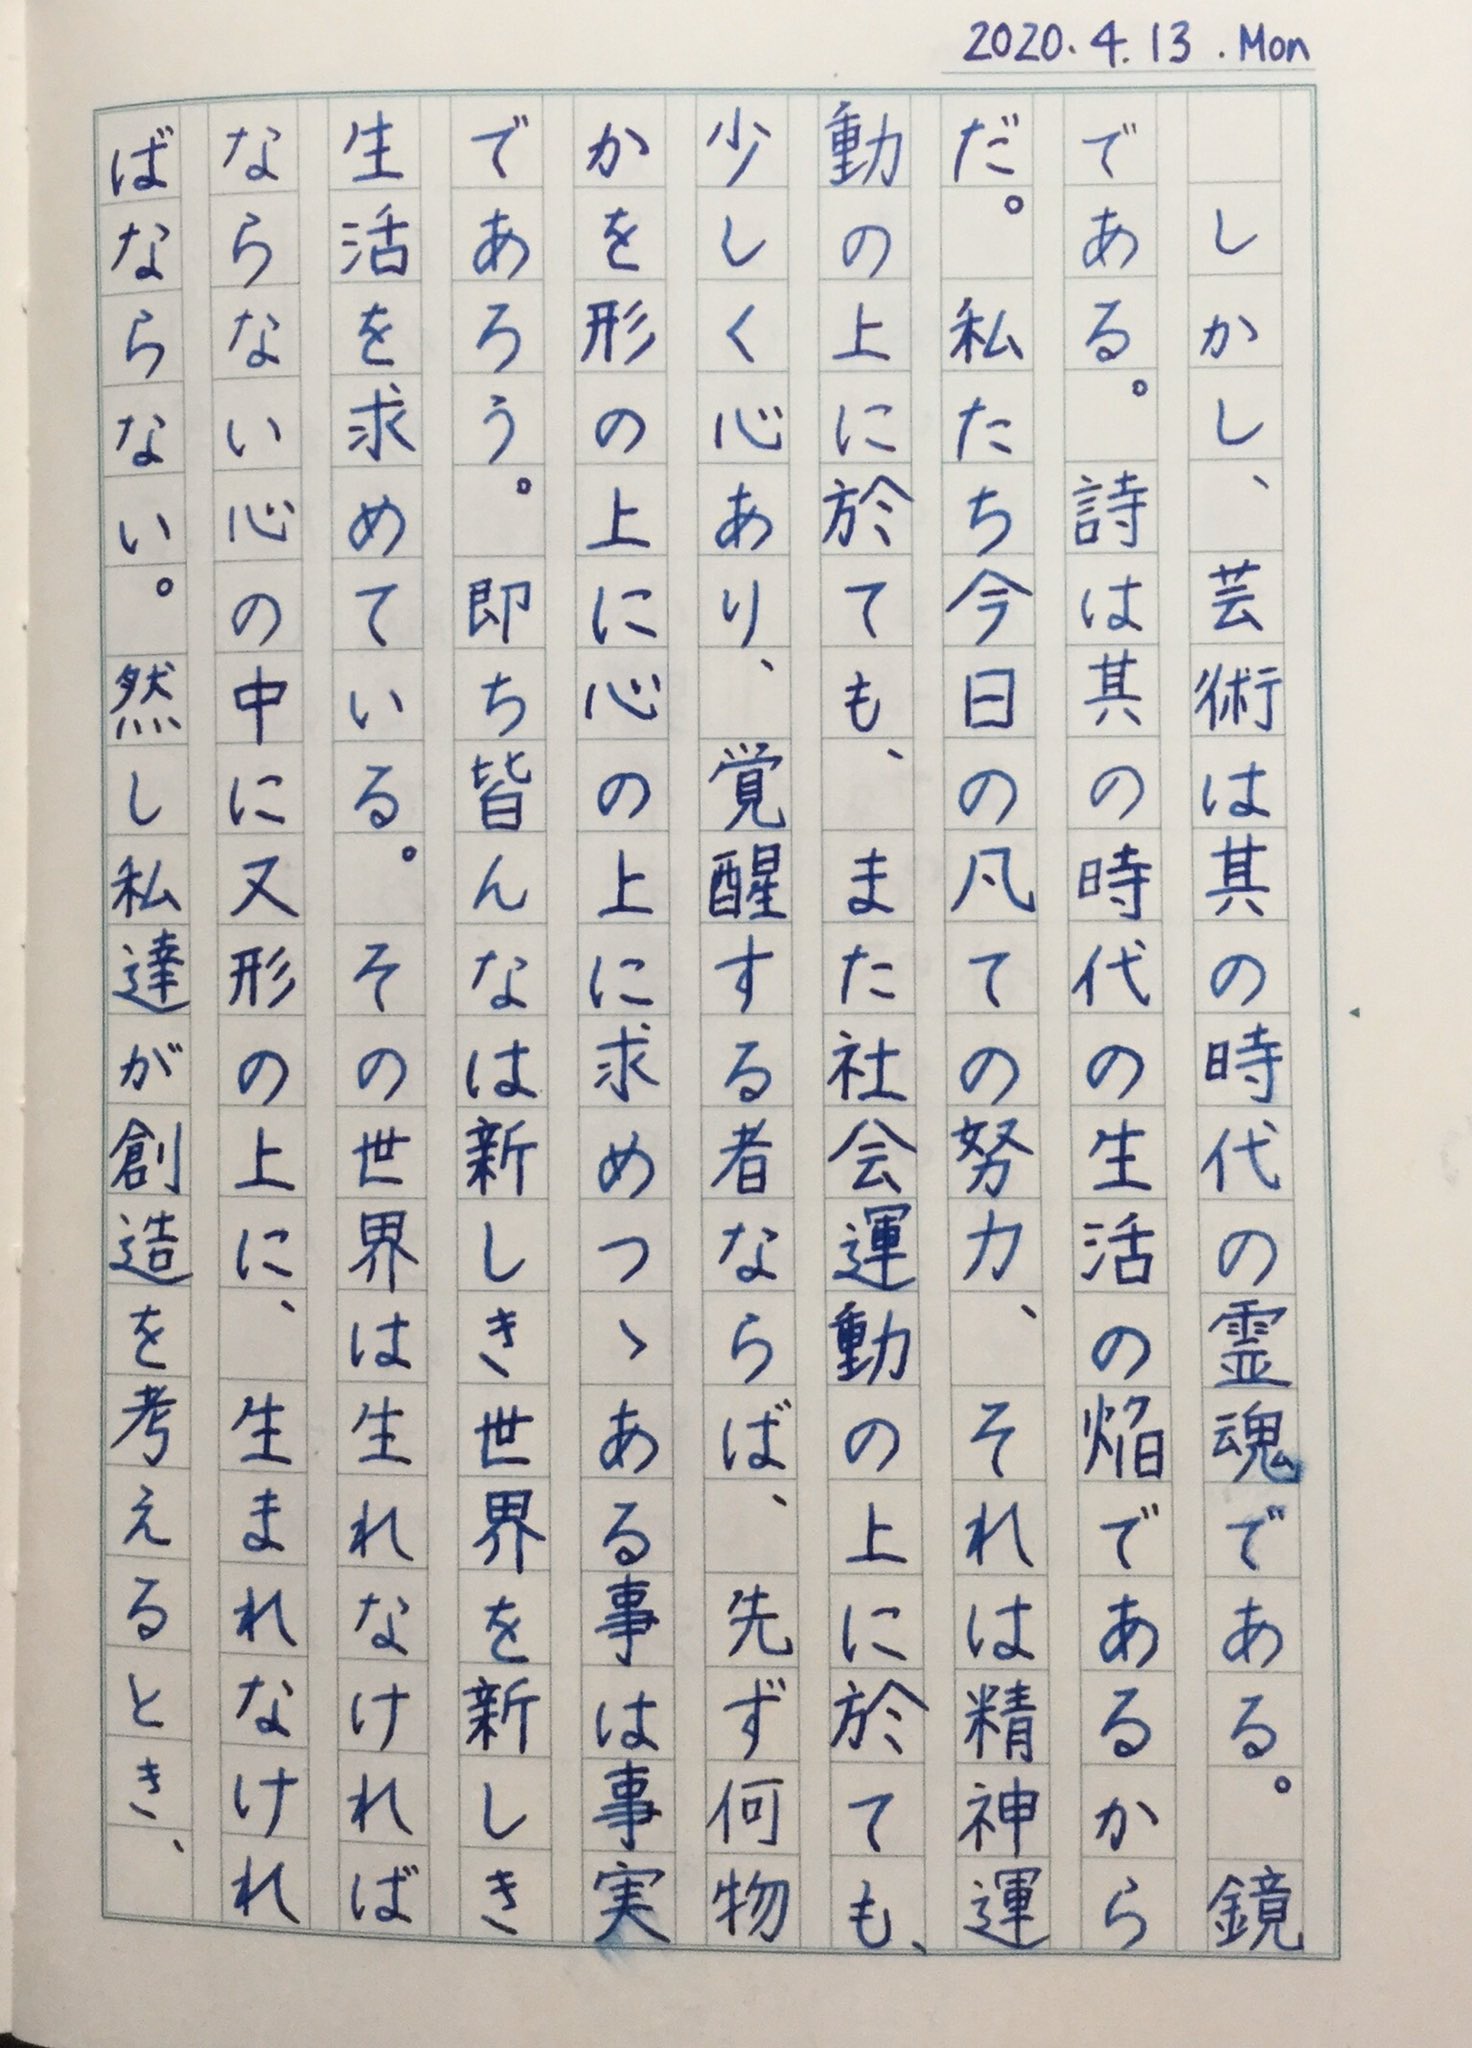 2020.4.13.Mon
しかし、芸術は其の時代の霊魂である。鏡
である。詩は其の時代の生活の焔であるから
だ。私たち今日の凡ての努力、それは精神運
動の上に於ても、また社会運動の上に於ても、
少しく心あり、覚醒する者ならば、先ず何物
かを形の上に心の上に求めつゝある事は事実
であろう。即ち皆んなは新しき世界を新しき
生活を求めている。その世界は生れなければ
ならない心の中に又形の上に、生まれなけれ
ばならない。然し私達が創造を考えるとき、